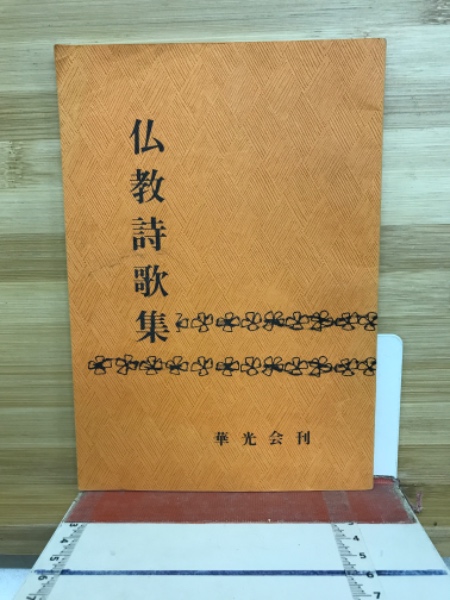 仏教詩歌集
華光会刊
3
4
5
6
7